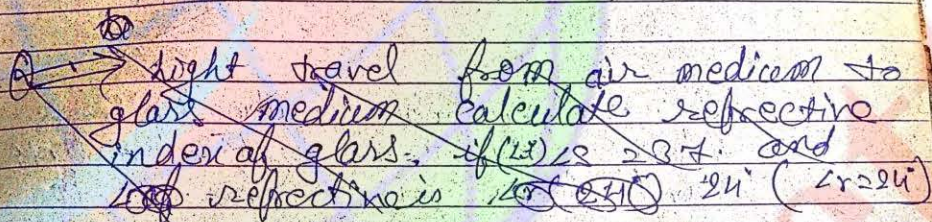 light travel from air medicem to
glass medium calculate refrective
index of glass, if (∠i) ∠s = 37 and
refrective is 24° (∠r = 24°)